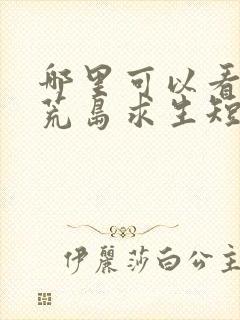 哪里可以看
荒岛求生短
伊麗莎白公主